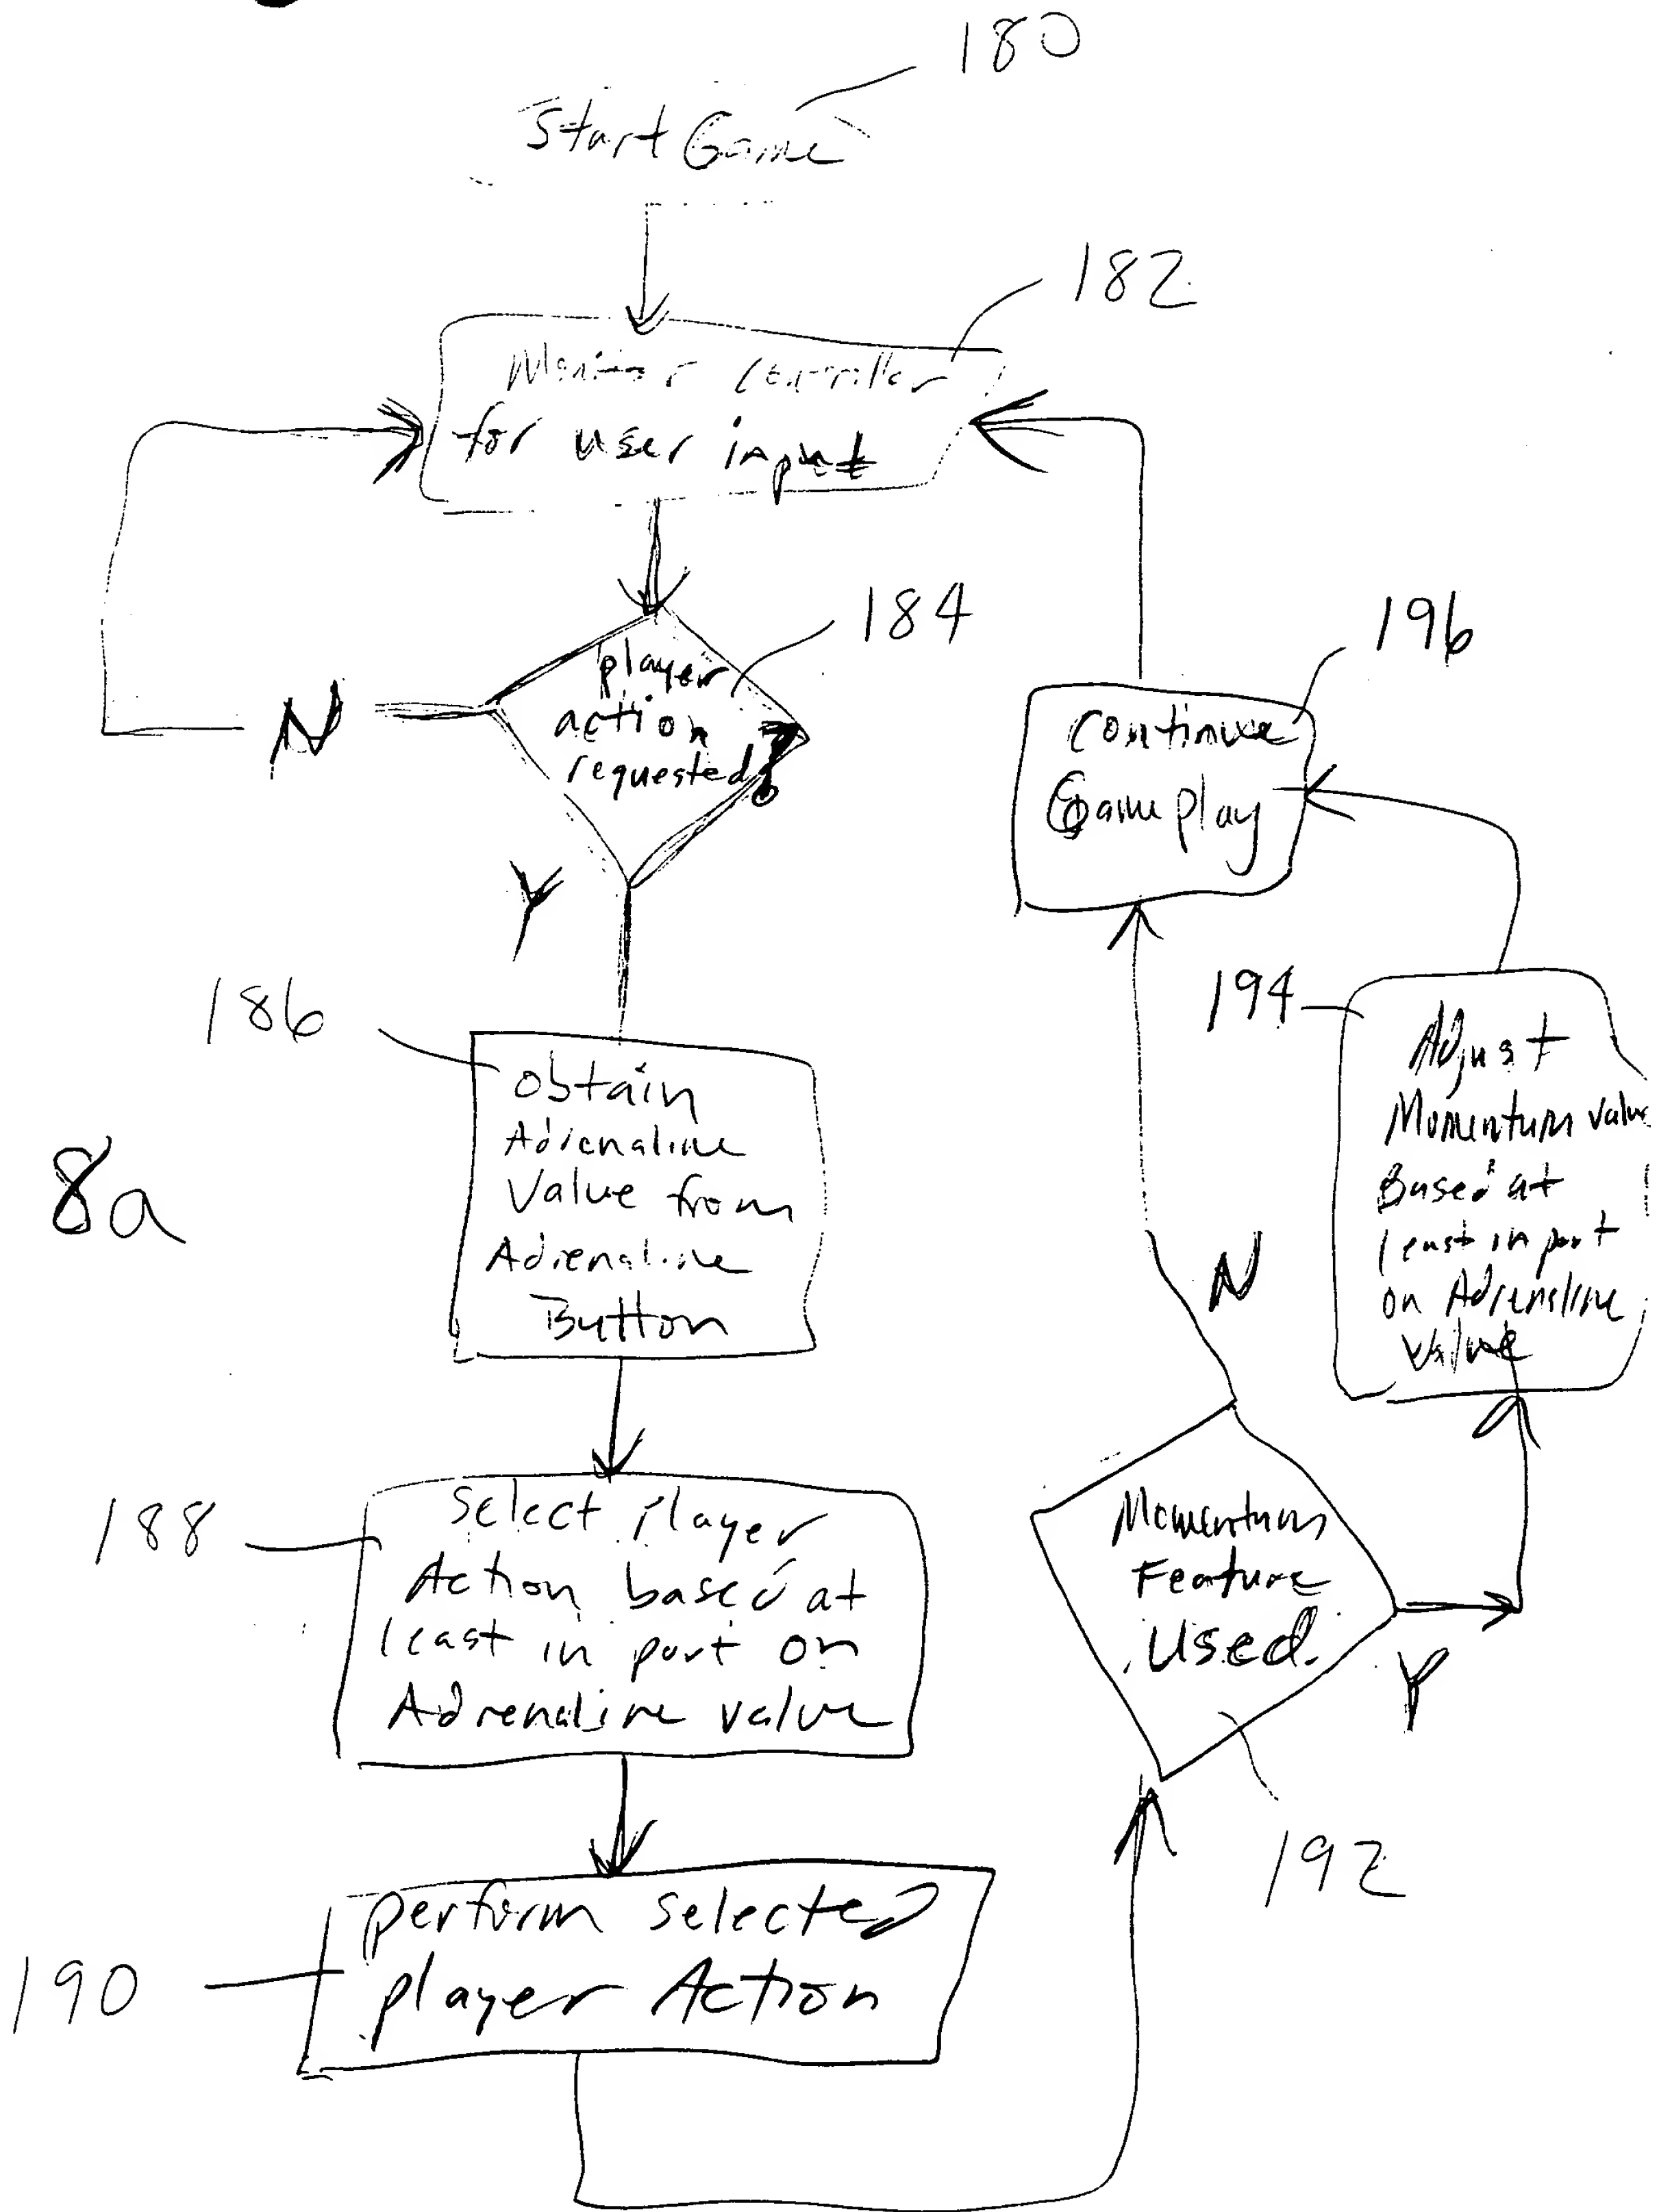 180
Start Game
182
Monitor Controller
for user input
184
player
action
requested?
N
Y
196
Continue
Gameplay
186
obtain
Adrenaline
Value from
Adrenaline
Button
194
Adjust
Momentum value
Based at
least in part
on Adrenaline
Value
8a
N
188
Select Player
Action based at
least in part on
Adrenaline value
Momentum
Feature
Used.
Y
192
190
perform selected
player Action